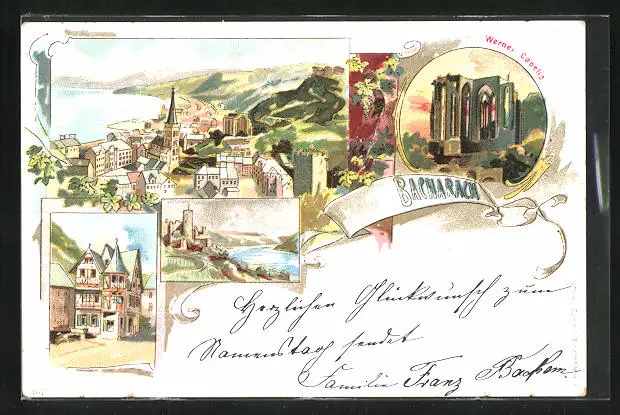 Werner Capelle
BACHARACH
Herzlichen Glückwunsch zum
Namenstag sendet
Familie Franz Bachem.